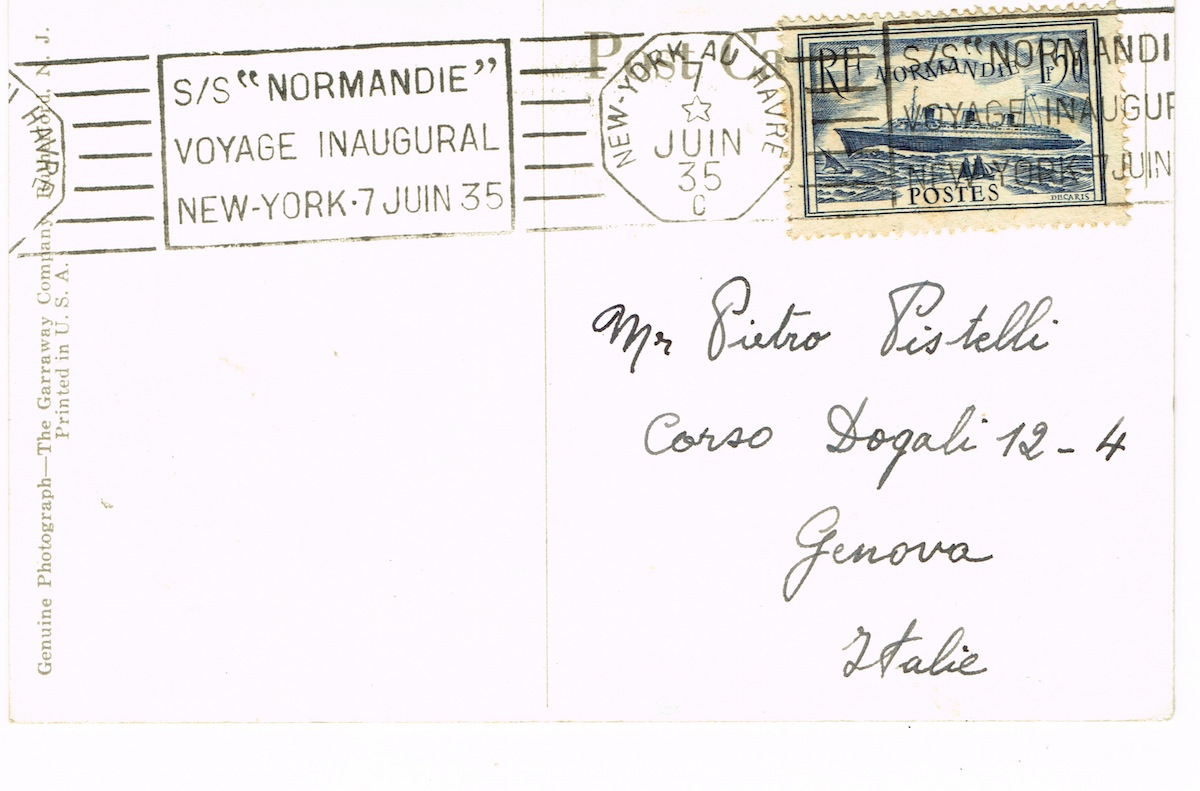 Post Ca
S/S "NORMANDIE"
VOYAGE INAUGURAL
NEW-YORK·7 JUIN 35
NEW-YORK AU HAVRE
7
JUIN
35
C
RF NORMANDIE 1F50
POSTES
DECARIS
S/S "NORMANDI
VOYAGE INAUGUR
NEW-YORK 7 JUIN
Mr Pietro Pistelli
Corso Dogali 12-4
Genova
Italie
Genuine Photograph—The Garraway Company, N. J.
Printed in U. S. A.